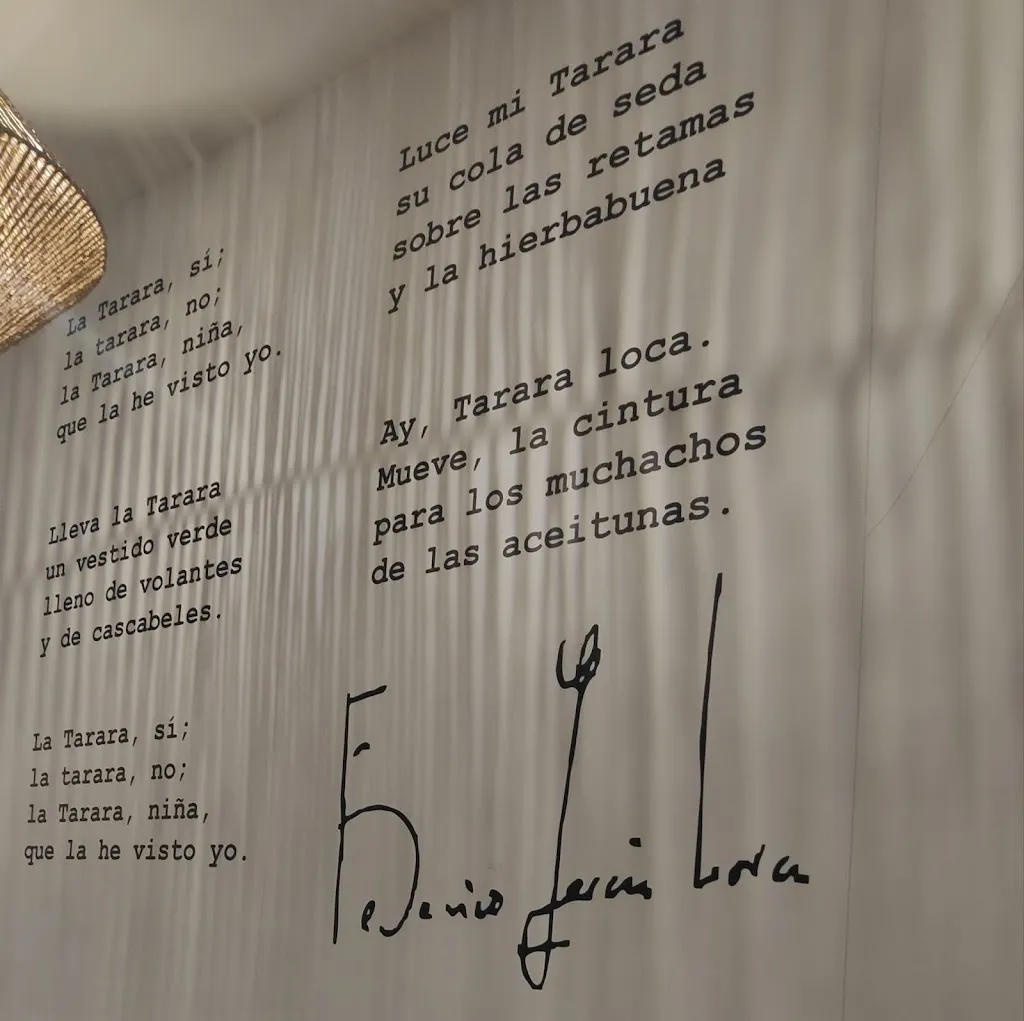 La Tarara, sí;
la tarara, no;
la Tarara, niña,
que la he visto yo.
Lleva la Tarara
un vestido verde
lleno de volantes
y de cascabeles.
La Tarara, sí;
la tarara, no;
la Tarara, niña,
que la he visto yo.
Luce mi Tarara
su cola de seda
sobre las retamas
y la hierbabuena
Ay, Tarara loca.
Mueve, la cintura
para los muchachos
de las aceitunas.
Federico García Lorca